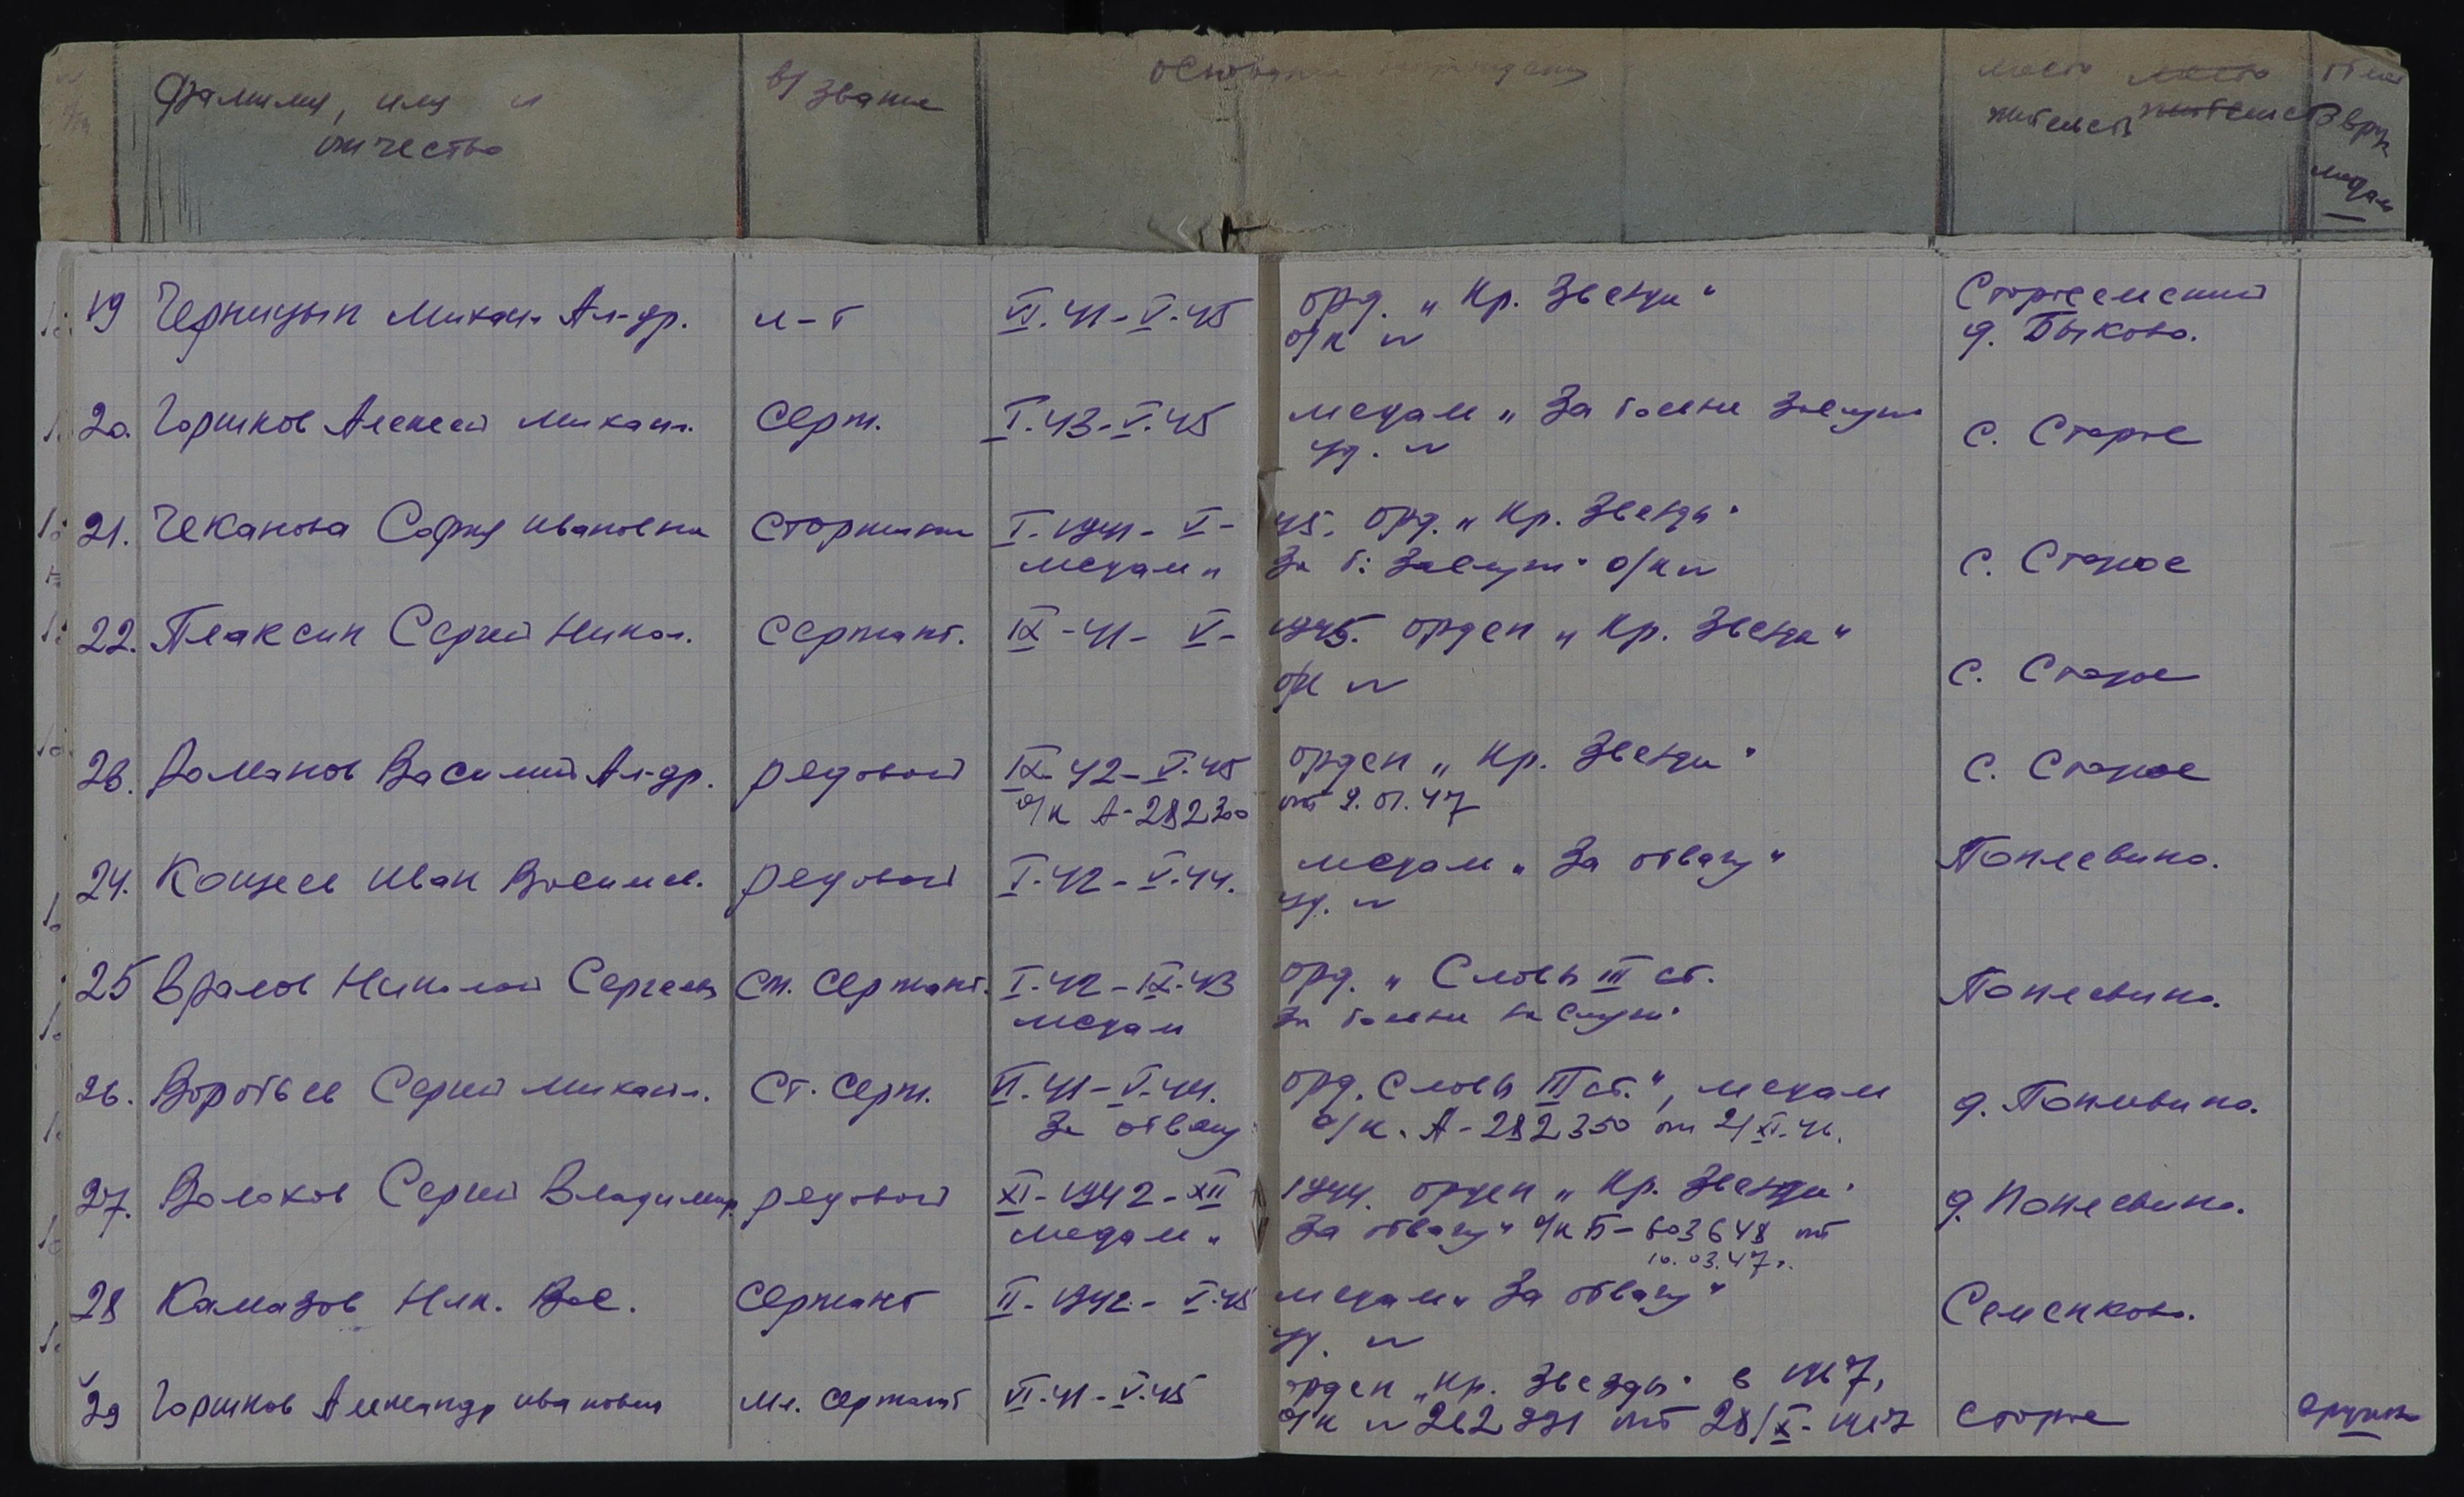 Фамилия, имя и отчество
в/звание
основание награждения
место жительств
Вруч. медал
19 Черницын Михаил Ал-др. л-т VI.41-V.45 орд. "Кр. Звезды" Старосельский
о/к № д. Быково.
20. Горшков Алексей Михаил. серж. I.43-V.45 медаль "За боевые заслуги с. Старое
уд. №
21. Чеканова София Ивановна старшина I-1941-V-45. орд. "Кр. Звезды"
медаль "За б. заслуги" о/к № с. Старое
22. Плаксин Сергей Никол. сержант. IX-41-V-1945. орден "Кр. Звезды"
о/к № с. Старое
23. Романов Василий Ал-др. рядовой IX-42-V.45 орден "Кр. Звезды" с. Старое
о/к А-282300 от 9.01.47
24. Кощеев Иван Васильев. рядовой I.42-V.44. медаль "За отвагу" Поплевино.
уд. №
25 Вралов Николай Сергеев ст. сержант. I.42-IX.43 орд. "Славы III ст. Поплевино.
медаль за боевые заслуги"
26. Воробьев Сергей Михаил. ст. серж. VI.41-V.44. орд. Славы III ст.", медаль д. Поплевино.
За отвагу о/к. А-282350 от 21/XI.46.
27. Волохов Сергей Владимир. рядовой XI-1942-XII 1944. орден "Кр. Звезды" д. Поплевино.
медаль "За отвагу" о/к Б-603648 от
10.03.47г.
28 Камазов Ник. Вас. сержант II-1942-V.45 медаль "За отвагу" Семенково.
уд. №
29 Горшков Александр Иванович мл. сержант VI.41-V.45 орден "Кр. Звезды" в 1967,
о/к № 262991 от 28/X-1967 Старое вручен